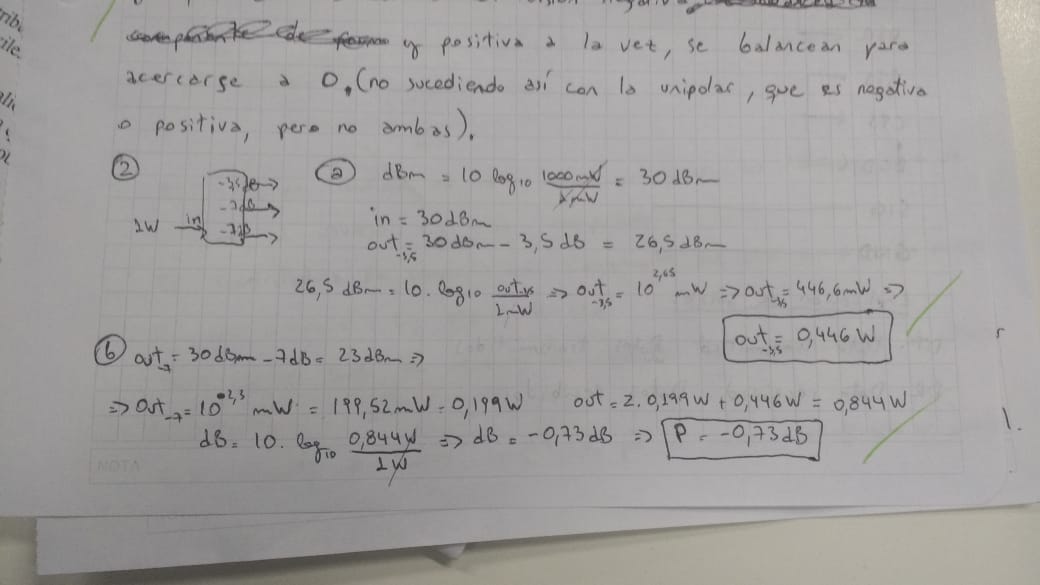 negativ
y positiva a la vez, se balancean para
acercarse a 0. (no sucediendo así con la unipolar, que es negativa
o positiva, pero no ambas).
② 1W in -3,5dB -7dB -7dB
ⓐ dBm = 10 log₁₀ 1000mW/1mW = 30 dBm
in = 30dBm
out₋₃,₅ = 30 dBm - 3,5 dB = 26,5 dBm
26,5 dBm = 10. log₁₀ out₋₃,₅/1mW => out₋₃,₅ = 10^2,65 mW => out₋₃,₅ = 446,6mW =>
out₋₃,₅ = 0,446 W
ⓑ out₋₇ = 30dBm - 7dB = 23dBm =>
=> out₋₇ = 10^2,3 mW = 199,52mW = 0,199W out = 2. 0,199W + 0,446W = 0,844W
dB = 10. log₁₀ 0,844W/1W => dB = -0,73dB => P = -0,73dB
NOTA